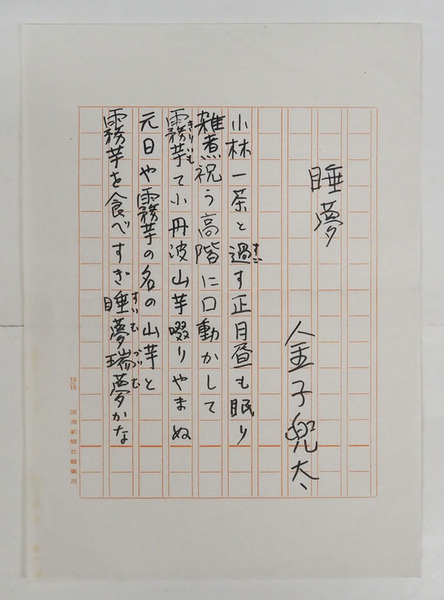 睡夢
金子兜太
小林一茶と過す正月昼も眠り
雑煮祝う高階に口動かして
霧芋て小丹波山芋啜りやまぬ
元日や霧芋の名の山芋と
霧芋を食べすぎ睡夢瑞夢かな